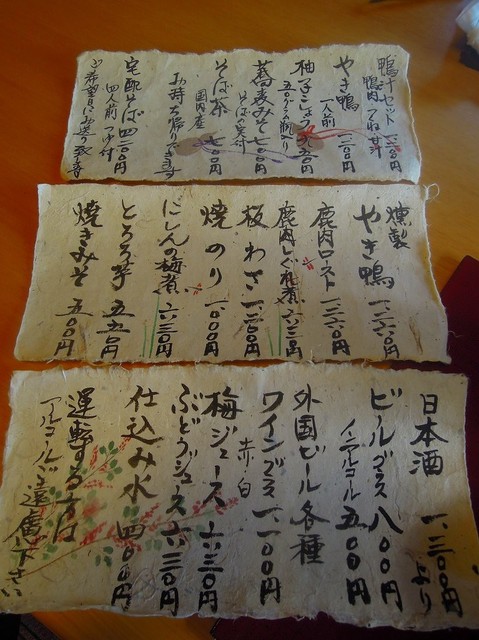 鴨汁セット 一、二〇〇円
鴨肉 つくね 甘汁
やき鴨 一人前 一二〇〇円
柚子こしょう 九五〇円
五〇ぐらむ瓶入り
蕎麦みそ 七〇〇円
そばの実付
そば茶 七〇〇円
国内産
お持ち帰りできます
宅配そば 四二〇〇円
四人前 つゆ付
ご希望日にお送り致します
燻製
やき鴨 一、二六〇円
鹿肉ロースト 一、二六〇円
鹿肉しぐれ煮 六三〇円
板わさ 一、二〇〇円
焼のり 一、〇〇〇円
にしんの梅煮 六三〇円
とろろ芋 五五〇円
焼きみそ 五〇〇円
日本酒 一、三〇〇円より
ビール グラス 八〇〇円
ノンアルコール 五〇〇円
外国ビール各種
ワイン グラス 一、一〇〇円
赤・白
梅ジュース 六三〇円
ぶどうジュース 六三〇円
仕込み水 四〇〇円
運転する方は
アルコールご遠慮下さい